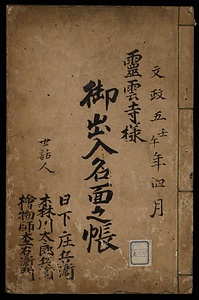 文政五壬午年四月
靈雲寺様
御出入名面之帳
世話人
日下庄兵衛
森川太郎兵衛
檜物師杢右衛門